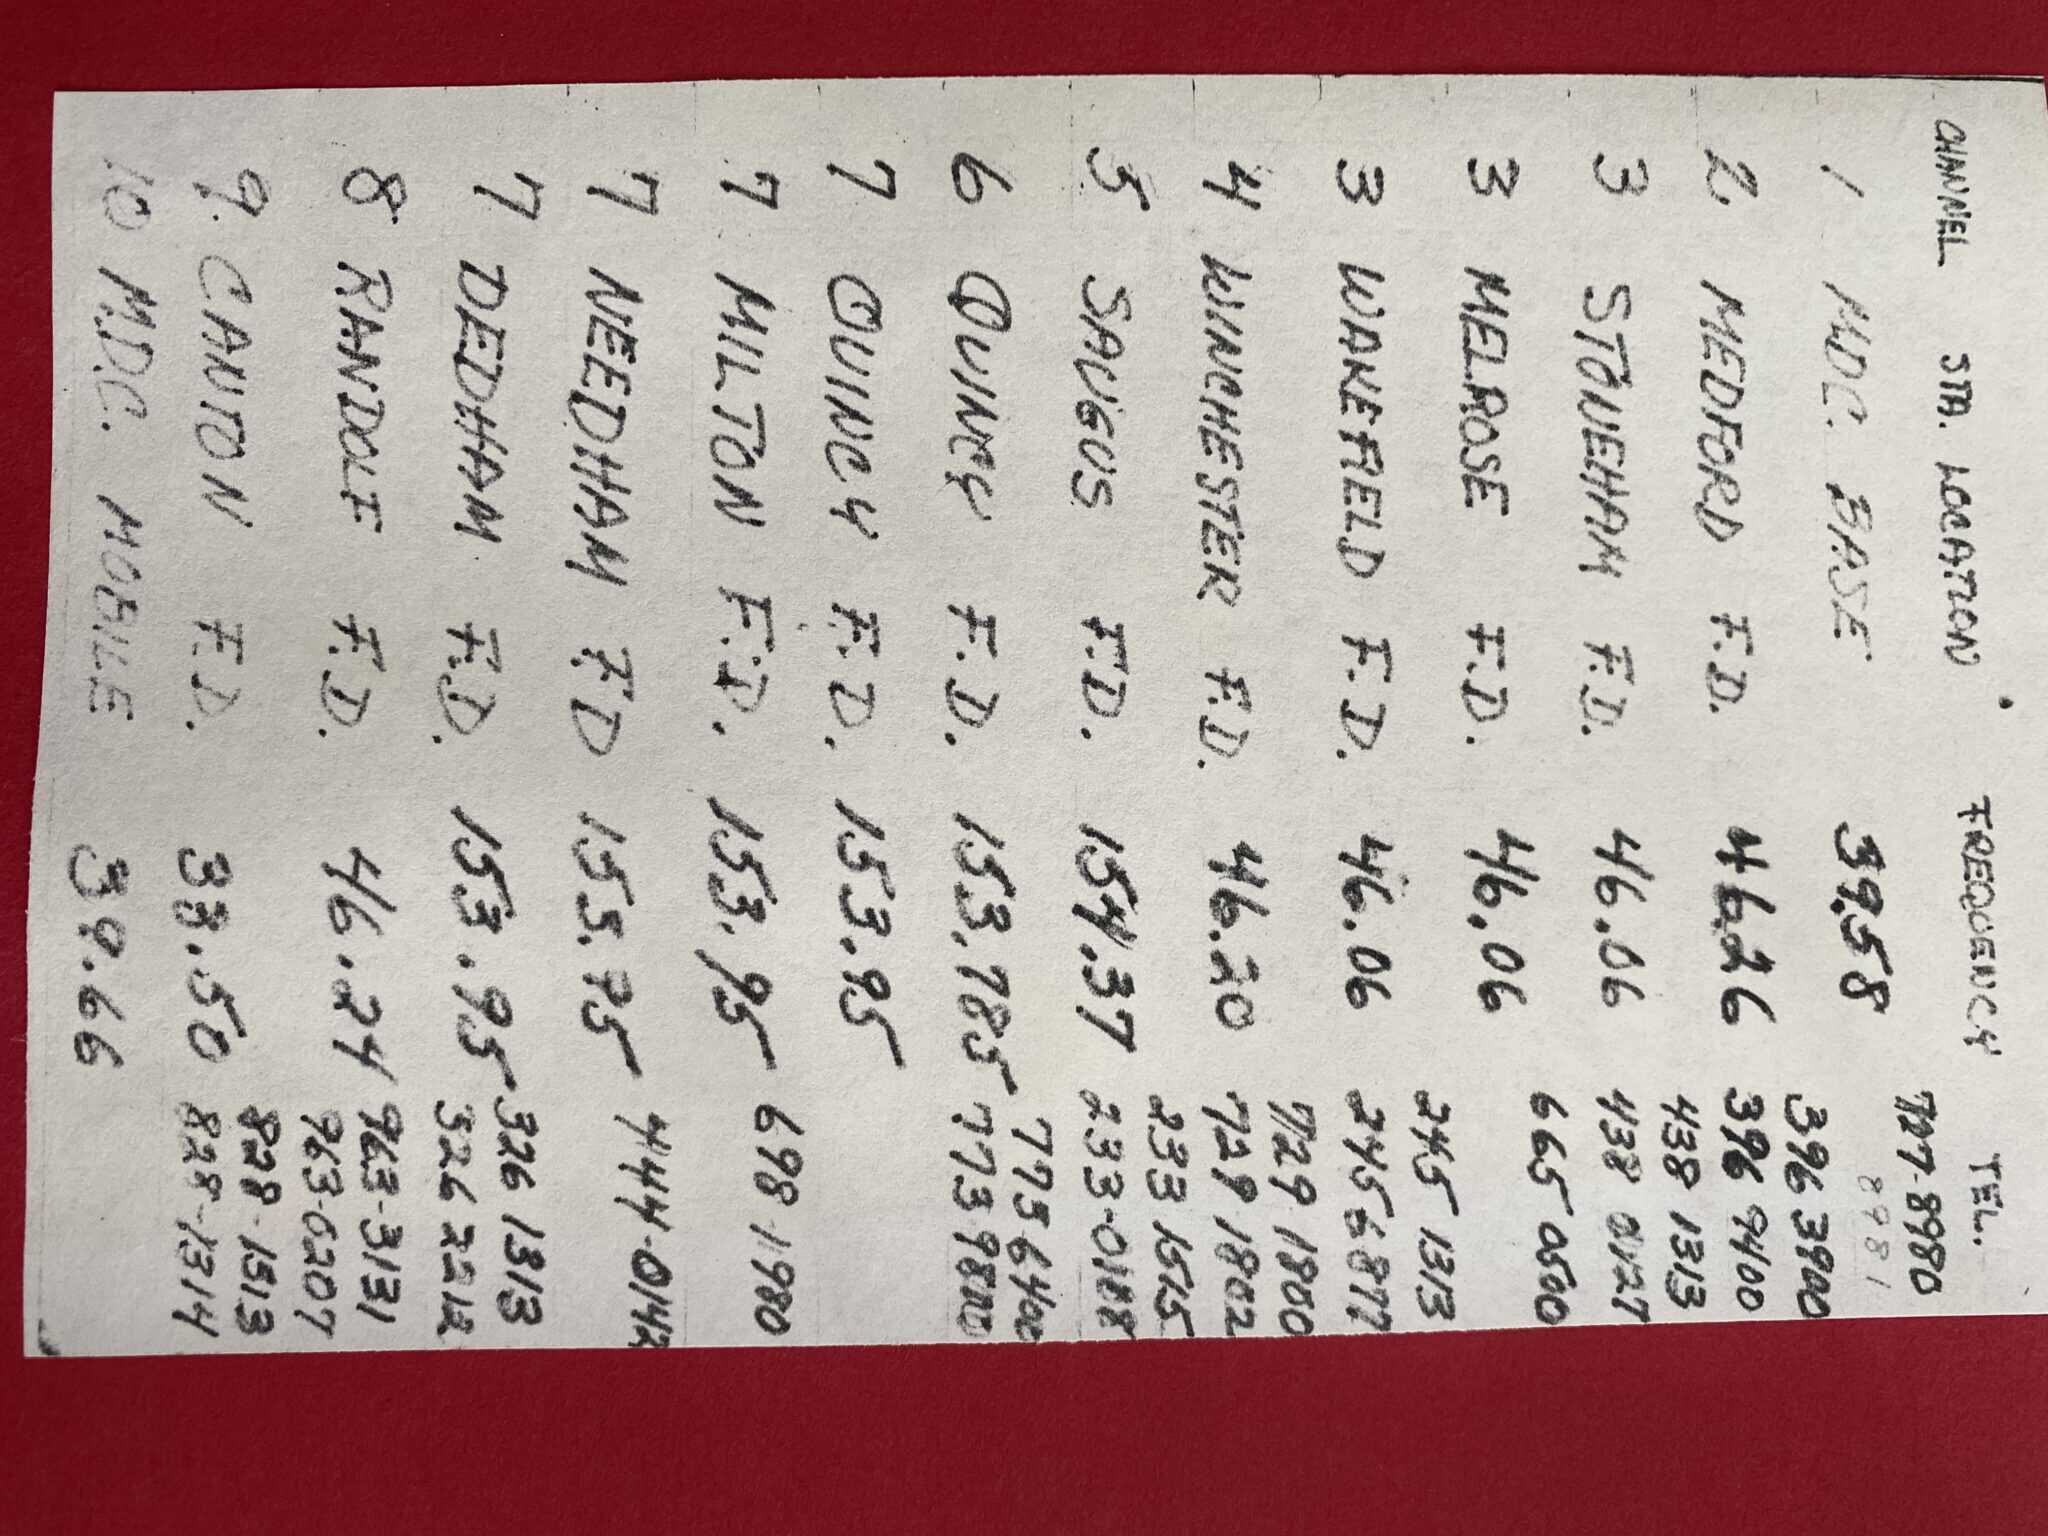 CHANNEL STA. LOCATION FREQUENCY TEL.
1 M.D.C. BASE 39.58 727-8980
8981
2. MEDFORD F.D. 46.26 396 3900
396 9400
3 STONEHAM F.D. 46.06 438 1313
438 0127
3 MELROSE F.D. 46.06 665 0500
3 WAKEFIELD F.D. 46.06 245 1313
245 6877
4 WINCHESTER F.D. 46.20 729 1800
729 1802
5 SAUGUS F.D. 154.37 233 1515
233-0188
6 QUINCY F.D. 153.785 775 6400
773 9800
7 QUINCY F.D. 153.95
7 MILTON F.D. 153.95 698-1980
7 NEEDHAM F.D 153.95 444-0142
7 DEDHAM F.D. 153.95 326 1313
326 2212
8 RANDOLF F.D. 46.24 963-3131
963-6207
9. CANTON F.D. 33.50 828-1513
828-1314
10 M.D.C. MOBILE 39.66